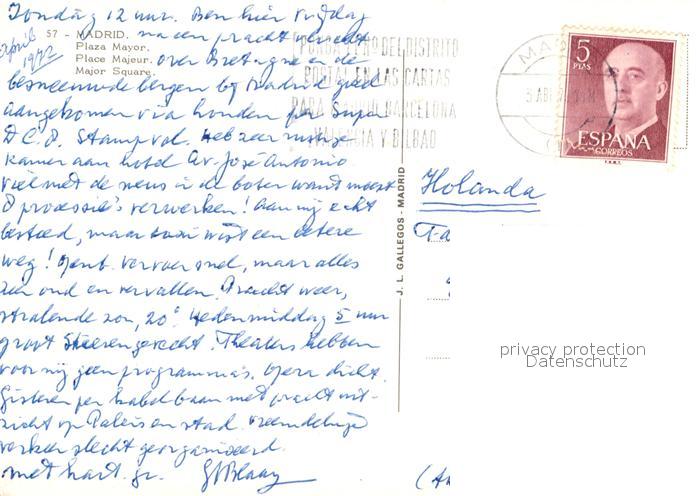 Zondag 12 uur. Ben hier vrijdag
april 1972
57 - MADRID. na een pracht vlucht
Plaza Mayor.
Place Majeur. over Bretagne en de
Major Square.
besneeuwde bergen bij Madrid goed
aangekomen via honden per Super
D.C.8. Stampvol. Heb zeer rustige
kamer aan hotel Av. José Antonio
viel met de neus in de boter want moest
8 processie's verwerken! Aan mij echt
besteed, maar Louis wist een betere
weg! Openb. vervoer snel, maar alles
zeer oud en vervallen. Pracht weer,
stralende zon, 20°. Hedenmiddag 5 uur
groot Stierengevecht. Theaters hebben
voor mij geen programma's. Opera dicht.
Gisteren per kabelbaan met pracht uit-
zicht op Paleis en stad. Vreemdelingen
verkeer slecht georganiseerd.
met hart. gr.
J. L. GALLEGOS - MADRID
PONGA EL Nº DEL DISTRITO
POSTAL EN LAS CARTAS
PARA MADRID, BARCELONA
VALENCIA Y BILBAO
5
PTAS
ESPAÑA
CORREOS
Holanda
privacy protection
Datenschutz